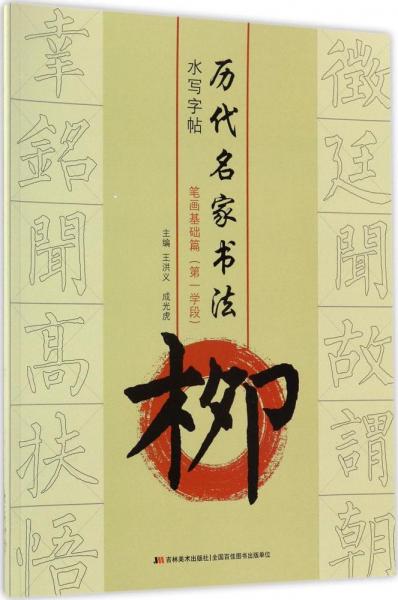 历代名家书法
水写字帖
笔画基础篇（第一学段）
主编 王洪义 成光虎
柳
徵
廷
聞
故
謂
朝
銘
聞
高
扶
悟
吉林美术出版社|全国百佳图书出版单位